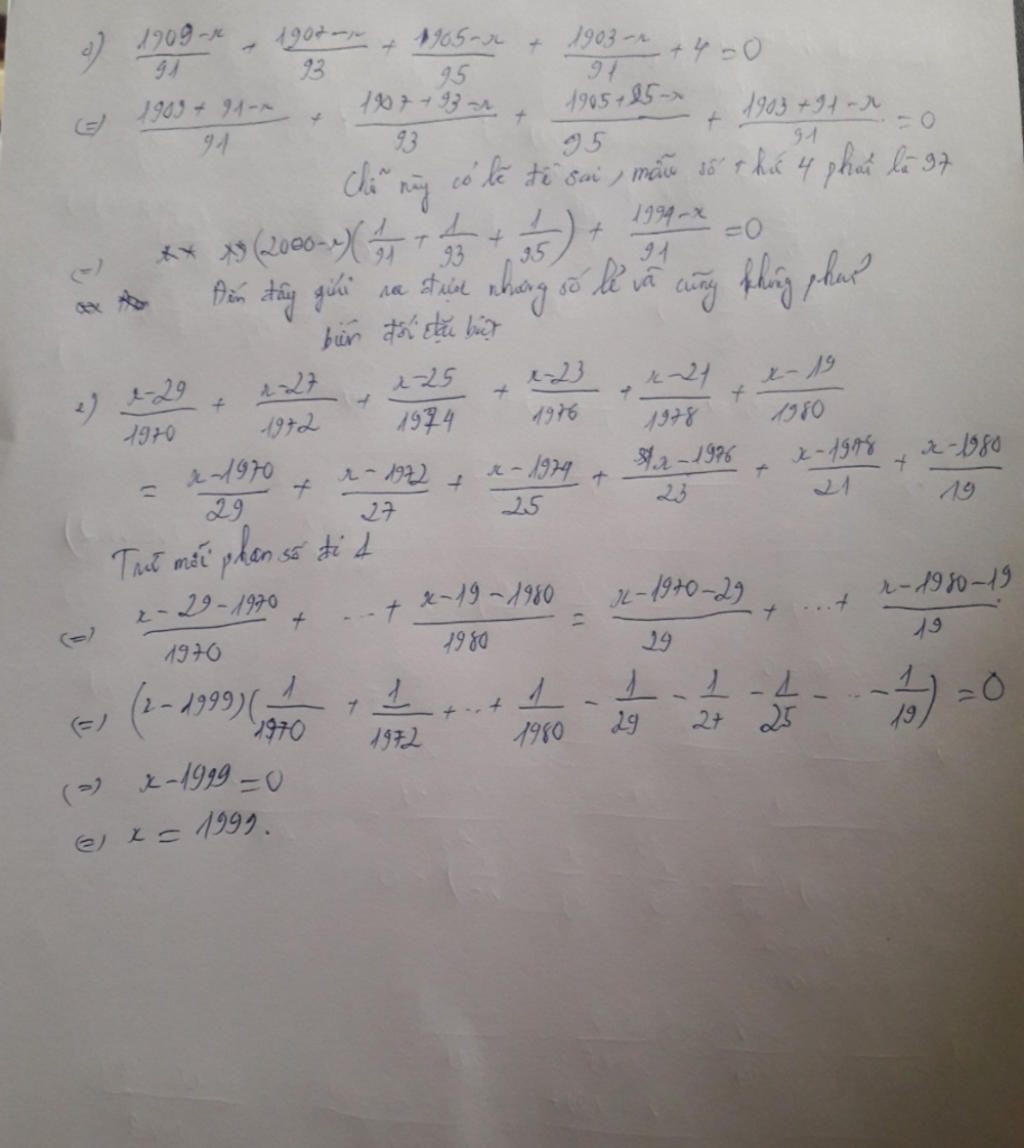 d) \frac{1909-x}{91} + \frac{1907-x}{93} + \frac{1905-x}{95} + \frac{1903-x}{91} + 4 = 0
(=) \frac{1909+91-x}{91} + \frac{1907+93-x}{93} + \frac{1905+95-x}{95} + \frac{1903+91-x}{91} = 0
Chỗ này có lẽ đề sai, mẫu số thứ 4 phải là 97
(=) (2000-x)(\frac{1}{91} + \frac{1}{93} + \frac{1}{95}) + \frac{1994-x}{91} = 0
Đến đây giải ra được nhưng số lẻ và cũng không phải
biến đổi đặc biệt
e) \frac{x-29}{1970} + \frac{x-27}{1972} + \frac{x-25}{1974} + \frac{x-23}{1976} + \frac{x-21}{1978} + \frac{x-19}{1980}
= \frac{x-1970}{29} + \frac{x-1972}{27} + \frac{x-1974}{25} + \frac{x-1976}{23} + \frac{x-1978}{21} + \frac{x-1980}{19}
Trừ mỗi phân số đi 1
(=) \frac{x-29-1970}{1970} + ... + \frac{x-19-1980}{1980} = \frac{x-1970-29}{29} + ... + \frac{x-1980-19}{19}
(=) (x-1999)(\frac{1}{1970} + \frac{1}{1972} + ... + \frac{1}{1980} - \frac{1}{29} - \frac{1}{27} - \frac{1}{25} - ... - \frac{1}{19}) = 0
(=) x-1999 = 0
(=) x = 1999.